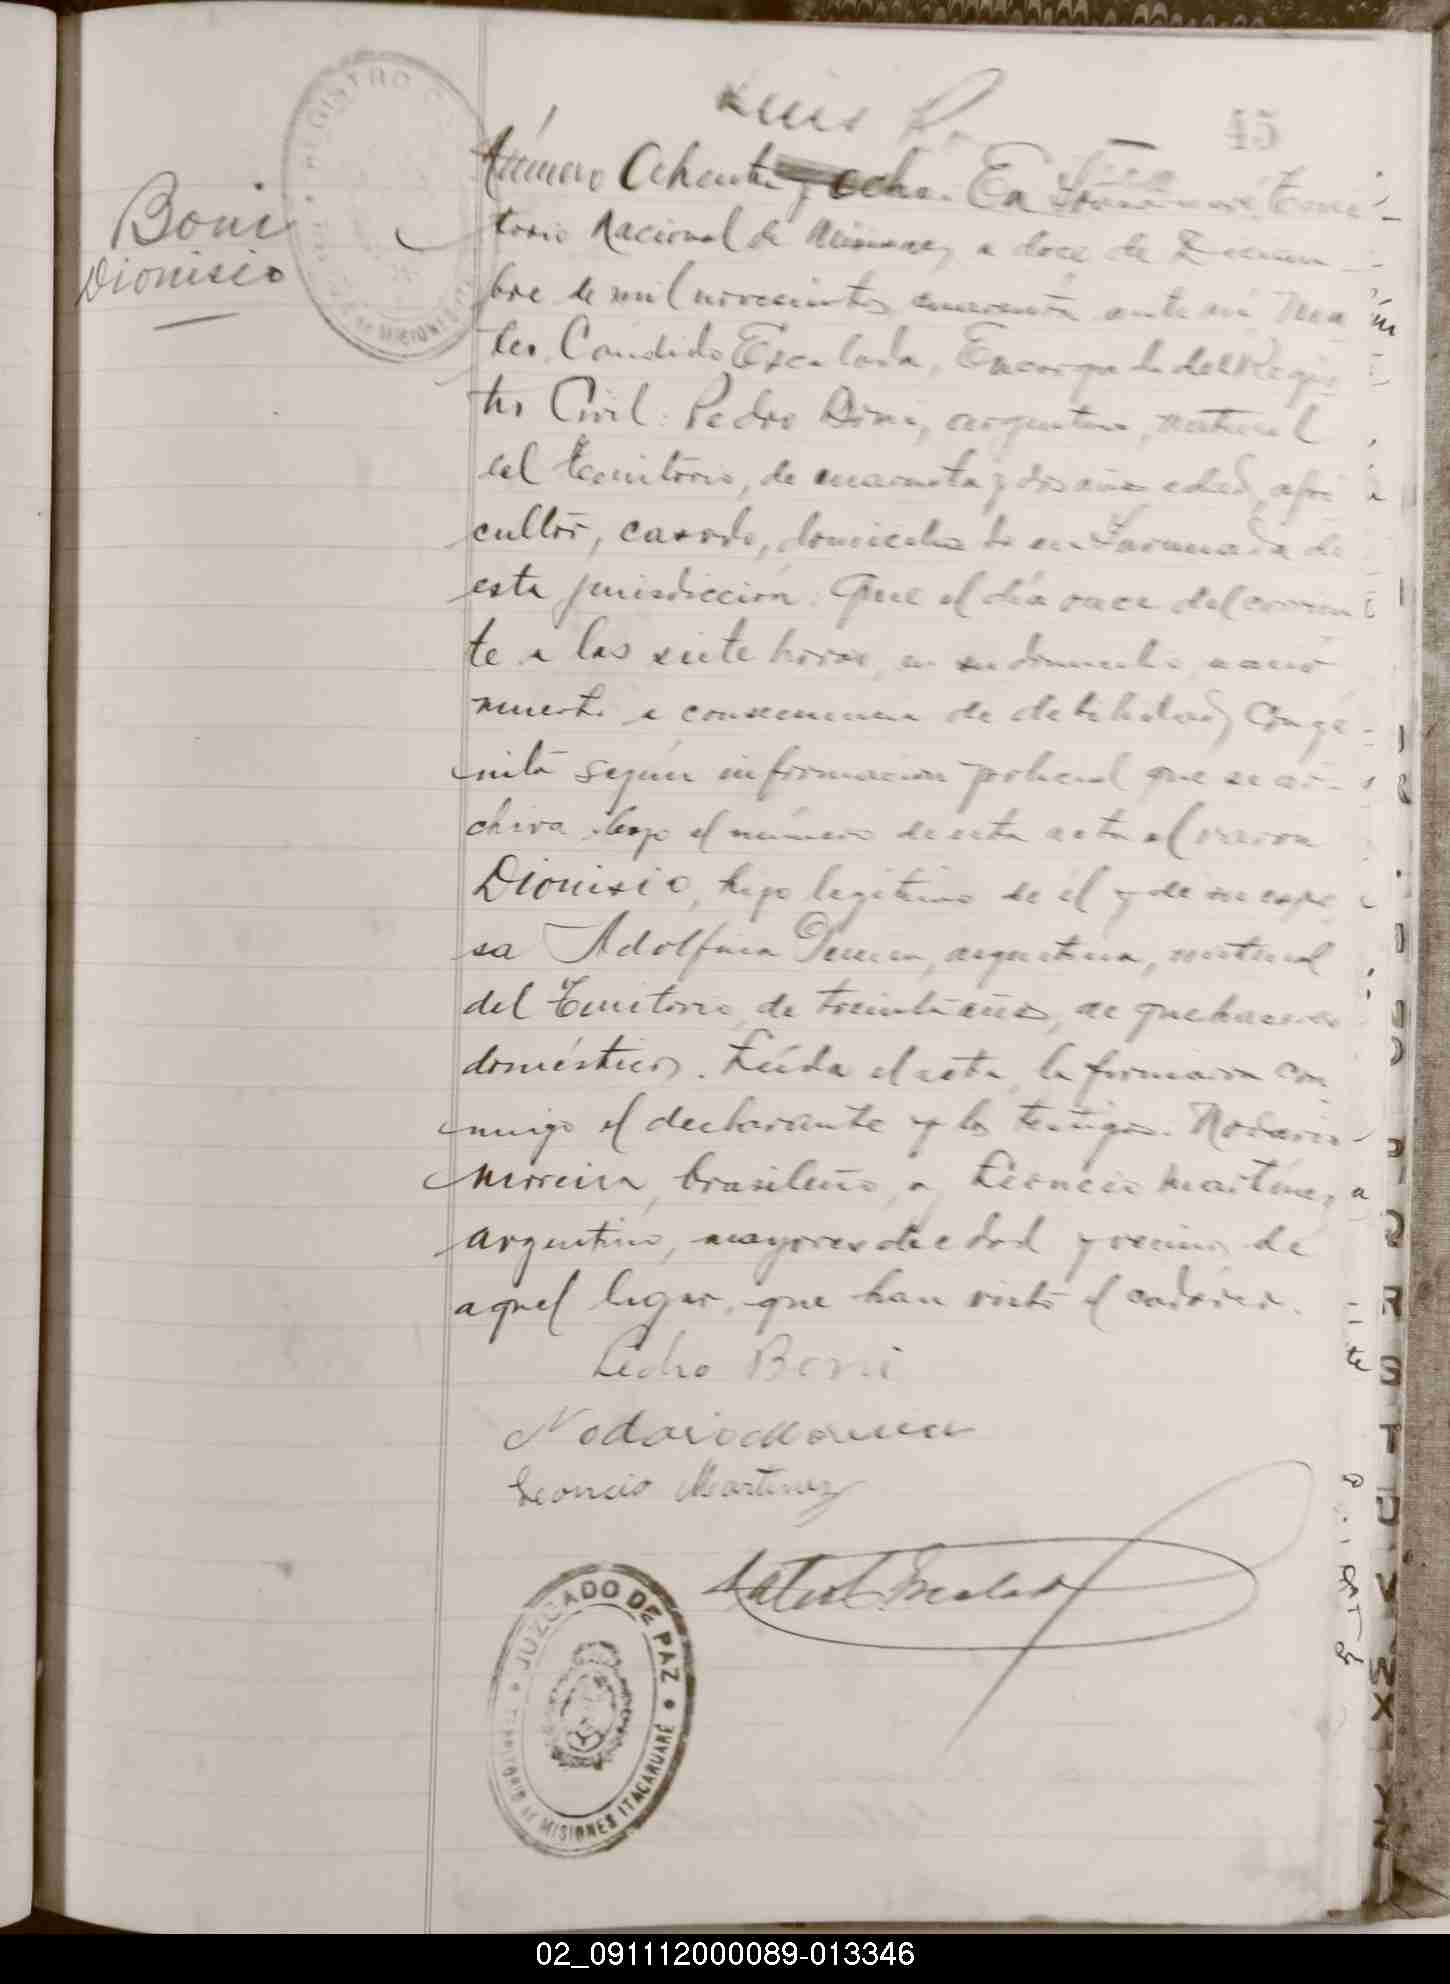 Luis
45
Boni
Dionisio
REGISTRO
DE MISIONES
Número Ochenta y ocho. En Terri-
torio Nacional de Misiones, a doce de Diciem-
bre de mil novecientos cuarenta ante mí,
Cándido Escalada, Encargado del Regis-
tro Civil: Pedro Boni, argentino, natural
del Territorio, de cuarenta y dos años edad, agri-
cultor, casado, domiciliado en de
esta jurisdicción: Que el día once del corrien-
te a las siete horas, en su domicilio, nació
muerto a consecuencia de debilidad congé-
nita según información policial que se ar-
chiva bajo el número de esta acta el varón
Dionisio, hijo legítimo de él y de su espo-
sa Adolfina, argentina, natural
del Territorio, de treinta años, de quehaceres
domésticos. Leída el acta, la firmaron con-
migo el declarante y los testigos: Nodario
Moreira, brasileño, y Leoncio Martínez,
argentino, mayores de edad y vecinos de
aquel lugar, que han visto el cadáver.
Pedro Boni
Nodario Moreira
Leoncio Martinez
Escalada
JUZGADO DE PAZ
TERRITORIO DE MISIONES ITACARUARÉ
R
S
T
U
V
W
X
Y
Z
02_091112000089-013346